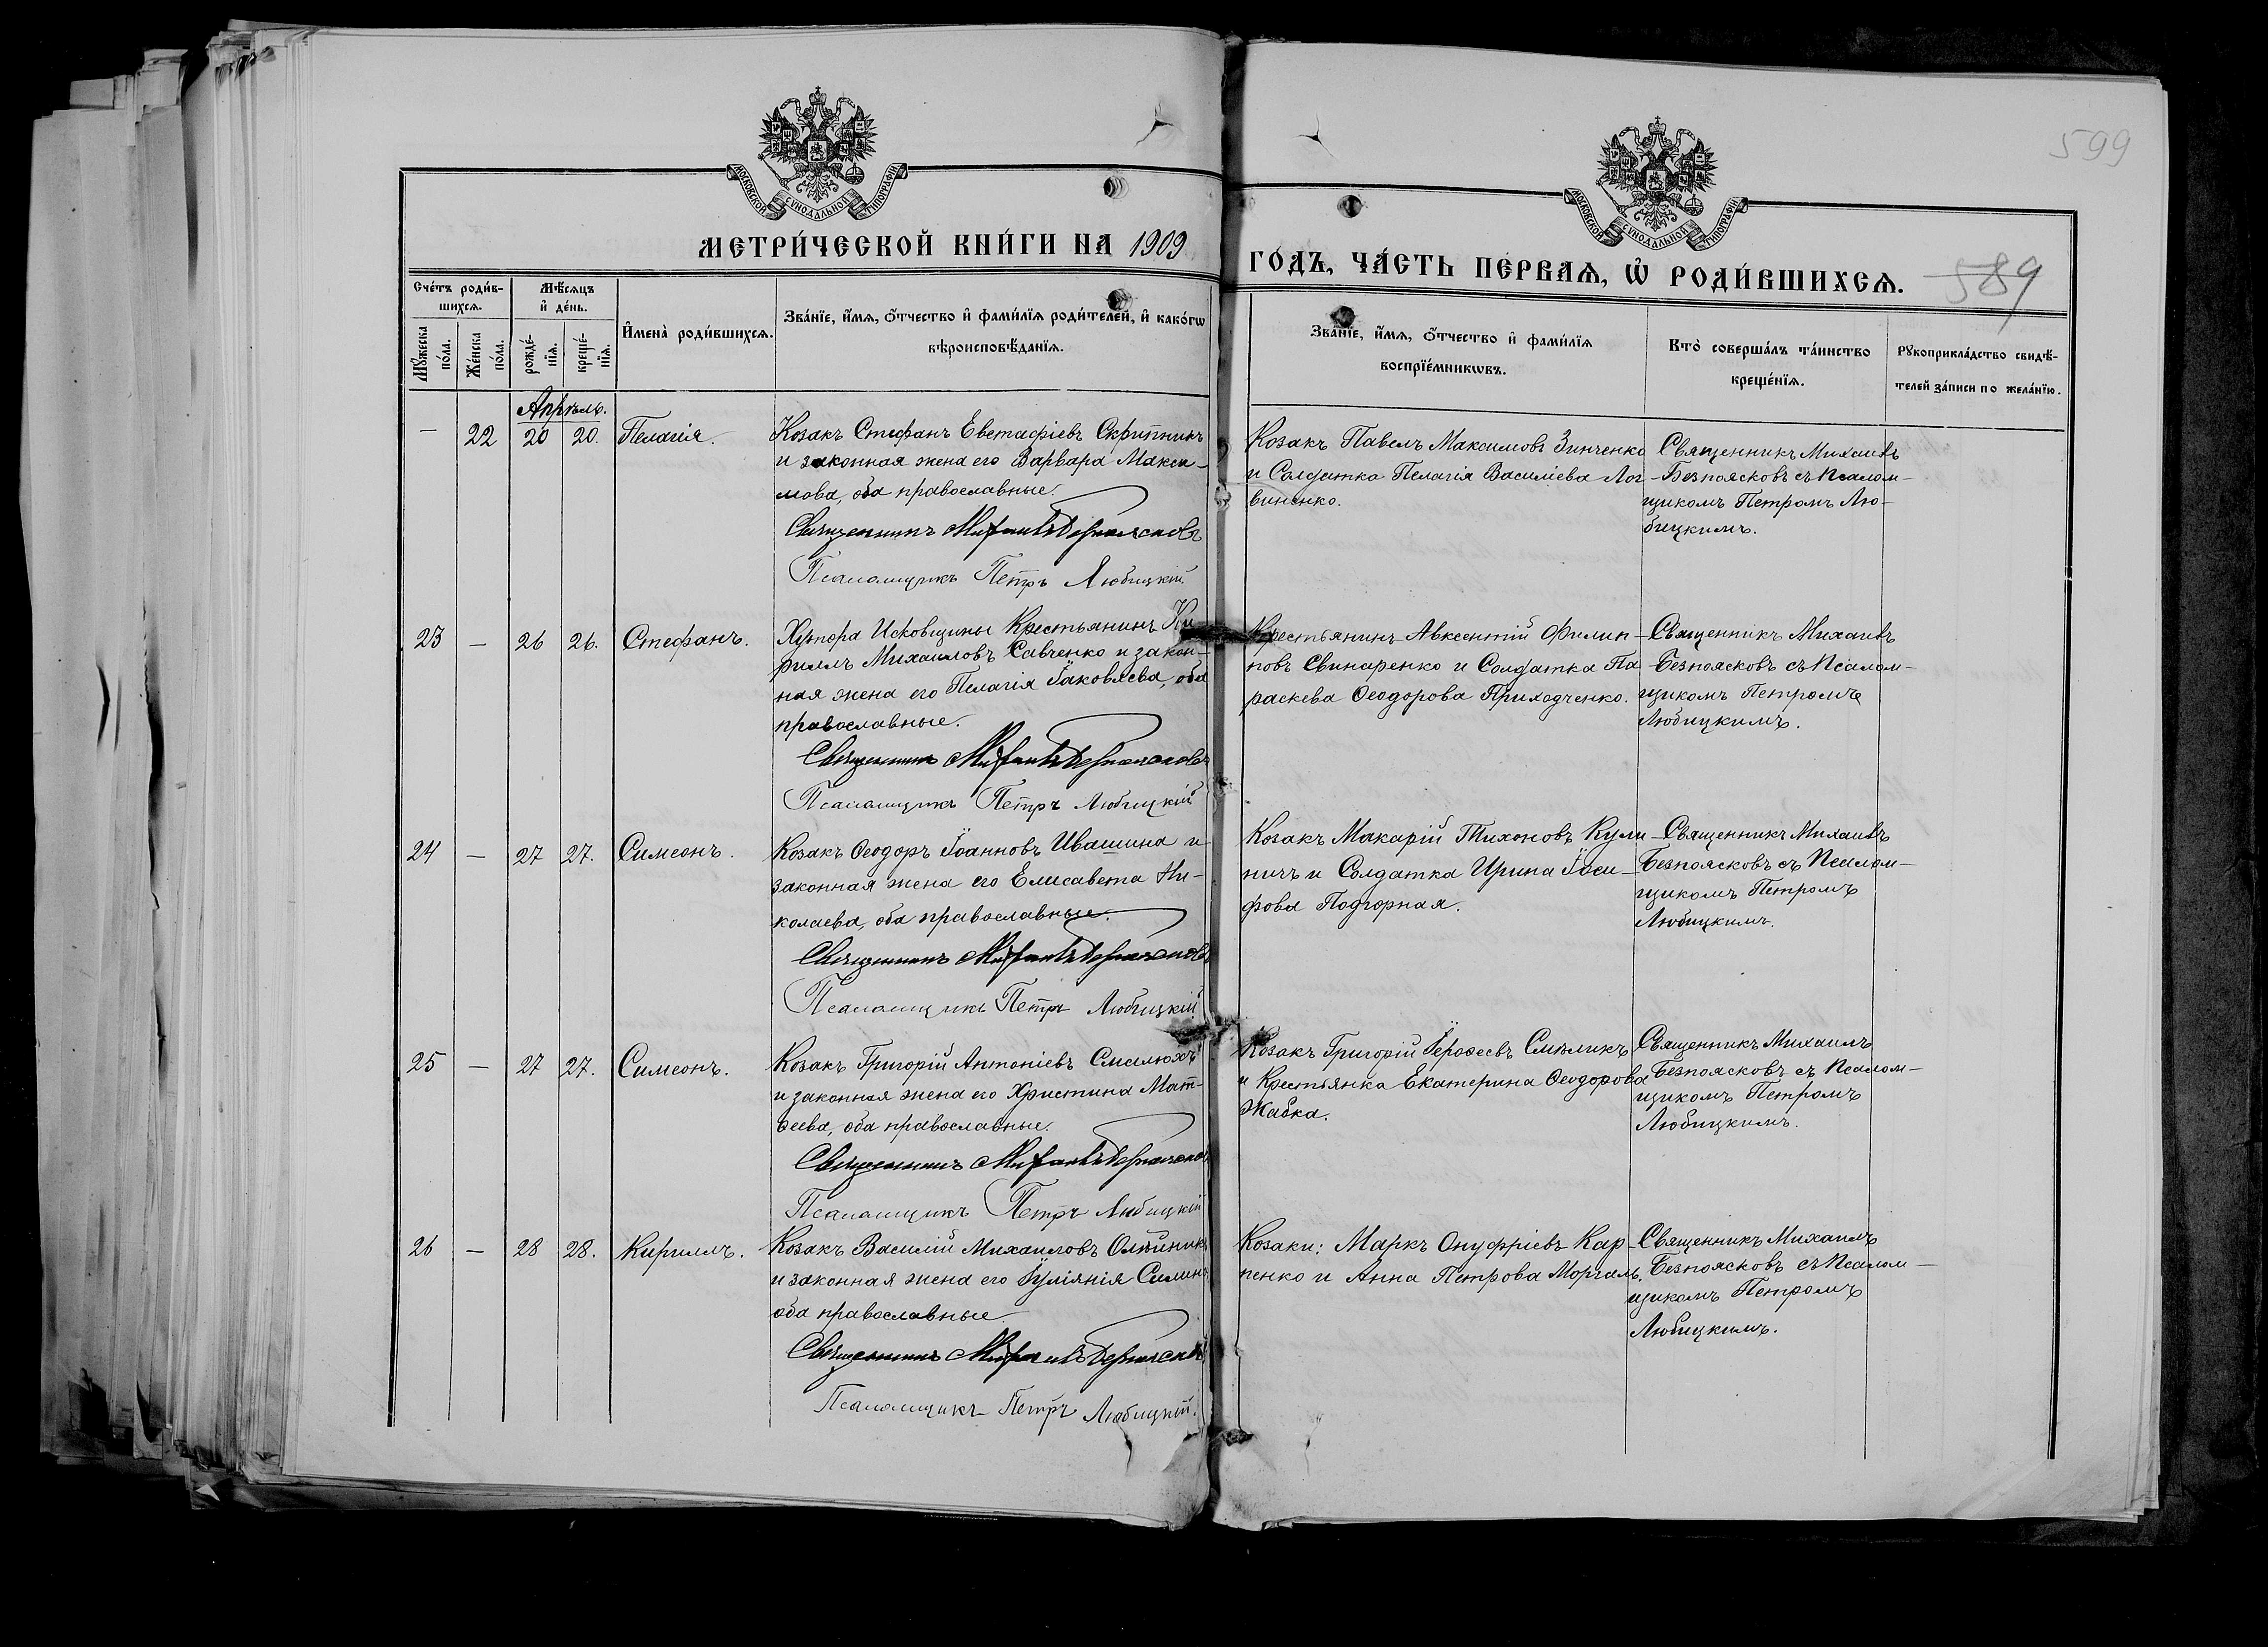 МОСКОВСКОЙ СѴНОДАЛЬНОЙ ТИПОГРАФІИ
МОСКОВСКОЙ СѴНОДАЛЬНОЙ ТИПОГРАФІИ
599
МЕТРИ́ЧЕСКОЙ КНИ́ГИ НА 1909
ГОДЪ, ЧА́СТЬ ПЕ́РВАѦ, Ѡ҆ РОДИ́ВШИХСѦ.
589
Сче́тъ роди́в-
шихсѧ.
Мѣ́сѧцъ
и҆ де́нь.
Мꙋжеска
по́ла.
Же́нска
по́ла.
рожде́-
нїѧ.
креще́-
нїѧ.
И҆мена̀ роди́вшихсѧ.
Зва́нїе, и҆́мѧ, ѻ҆́тчество и҆ фами́лїѧ роди́телей, и҆ како́гѡ
вѣроисповѣ́данїѧ.
Зва́нїе, и҆́мѧ, ѻ҆́тчество и҆ фами́лїѧ
воспрїе́мникѡвъ.
Кто̀ соверша́лъ та́инство
креще́нїѧ.
Рꙋкоприкла́дство свидѣ́-
телей за́писи по жела́нїю.
Апрѣль.
— 22 20 20. Пелагія.
Козакъ Стефанъ Евстафіевъ Скрипникъ
и законная жена его Варвара Макси-
мова, оба православные.
Священникъ Михаилъ Безпоясковъ
Псаломщикъ Петръ Любицкій
Козакъ Павелъ Максимовъ Зинченко
и Солдатка Пелагія Василіева Лог-
виненко.
Священникъ Михаилъ
Безпоясковъ съ Псалом-
щикомъ Петромъ Лю-
бицкимъ.
23 — 26 26. Стефанъ.
Хутора Исковщины Крестьянинъ Ки-
риллъ Михаиловъ Савченко и закон-
ная жена его Пелагія Іаковлева, оба
православные.
Священникъ Михаилъ Безпоясковъ
Псаломщикъ Петръ Любицкій
Крестьянинъ Авксентій Филип-
повъ Свинаренко и Солдатка Па
раскева Ѳеодорова Приходченко.
Священникъ Михаилъ
Безпоясковъ съ Псалом-
щикомъ Петромъ
Любицкимъ.
24 — 27 27. Симеонъ.
Козакъ Ѳеодоръ Іоанновъ Ивашина и
законная жена его Елисавета Ни-
колаева, оба православные.
Священникъ Михаилъ Безпоясковъ
Псаломщикъ Петръ Любицкій
Козакъ Макарій Тихоновъ Кули-
ничъ и Солдатка Ирина Іоси-
фова Подгорная.
Священникъ Михаилъ
Безпоясковъ съ Псалом-
щикомъ Петромъ
Любицкимъ.
25 — 27 27. Симеонъ.
Козакъ Григорій Антоніевъ
и законная жена его Христина Мат-
ѳеева, оба православные.
Священникъ Михаилъ Безпоясковъ
Псаломщикъ Петръ Любицкій
Козакъ Григорій Іероѳеевъ Смѣликъ
и Крестьянка Екатерина Ѳеодорова
Жабка.
Священникъ Михаилъ
Безпоясковъ съ Псалом-
щикомъ Петромъ
Любицкимъ.
26 — 28 28. Кириллъ.
Козакъ Василій Михаиловъ Олѣйникъ
и законная жена его Іуліянія Силина
оба православные.
Священникъ Михаилъ Безпоясковъ
Псаломщикъ Петръ Любицкій.
Козаки: Маркъ Онуфріевъ Кар-
пенко и Анна Петрова Моргаль.
Священникъ Михаилъ
Безпоясковъ съ Псалом-
щикомъ Петромъ
Любицкимъ.